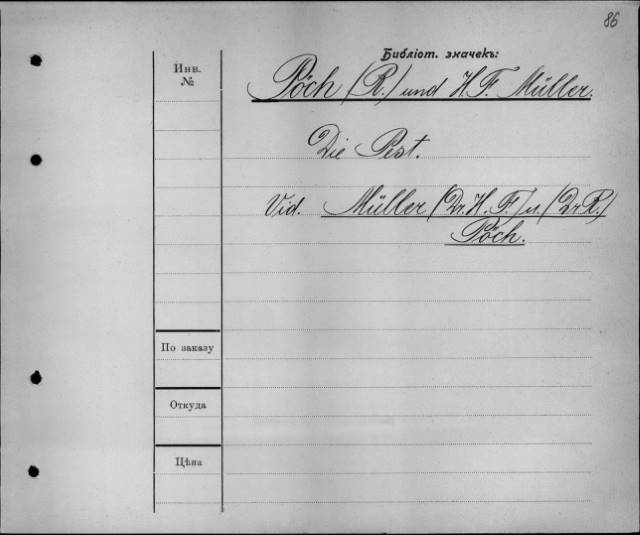 86
Библіот. значекъ:
Инв.
№
Pöch (R.) und H. F. Müller.
Die Pest.
Vid. Müller (Dr. H. F.) u. (Dr R.)
Pöch.
По заказу
Откуда
Цѣна